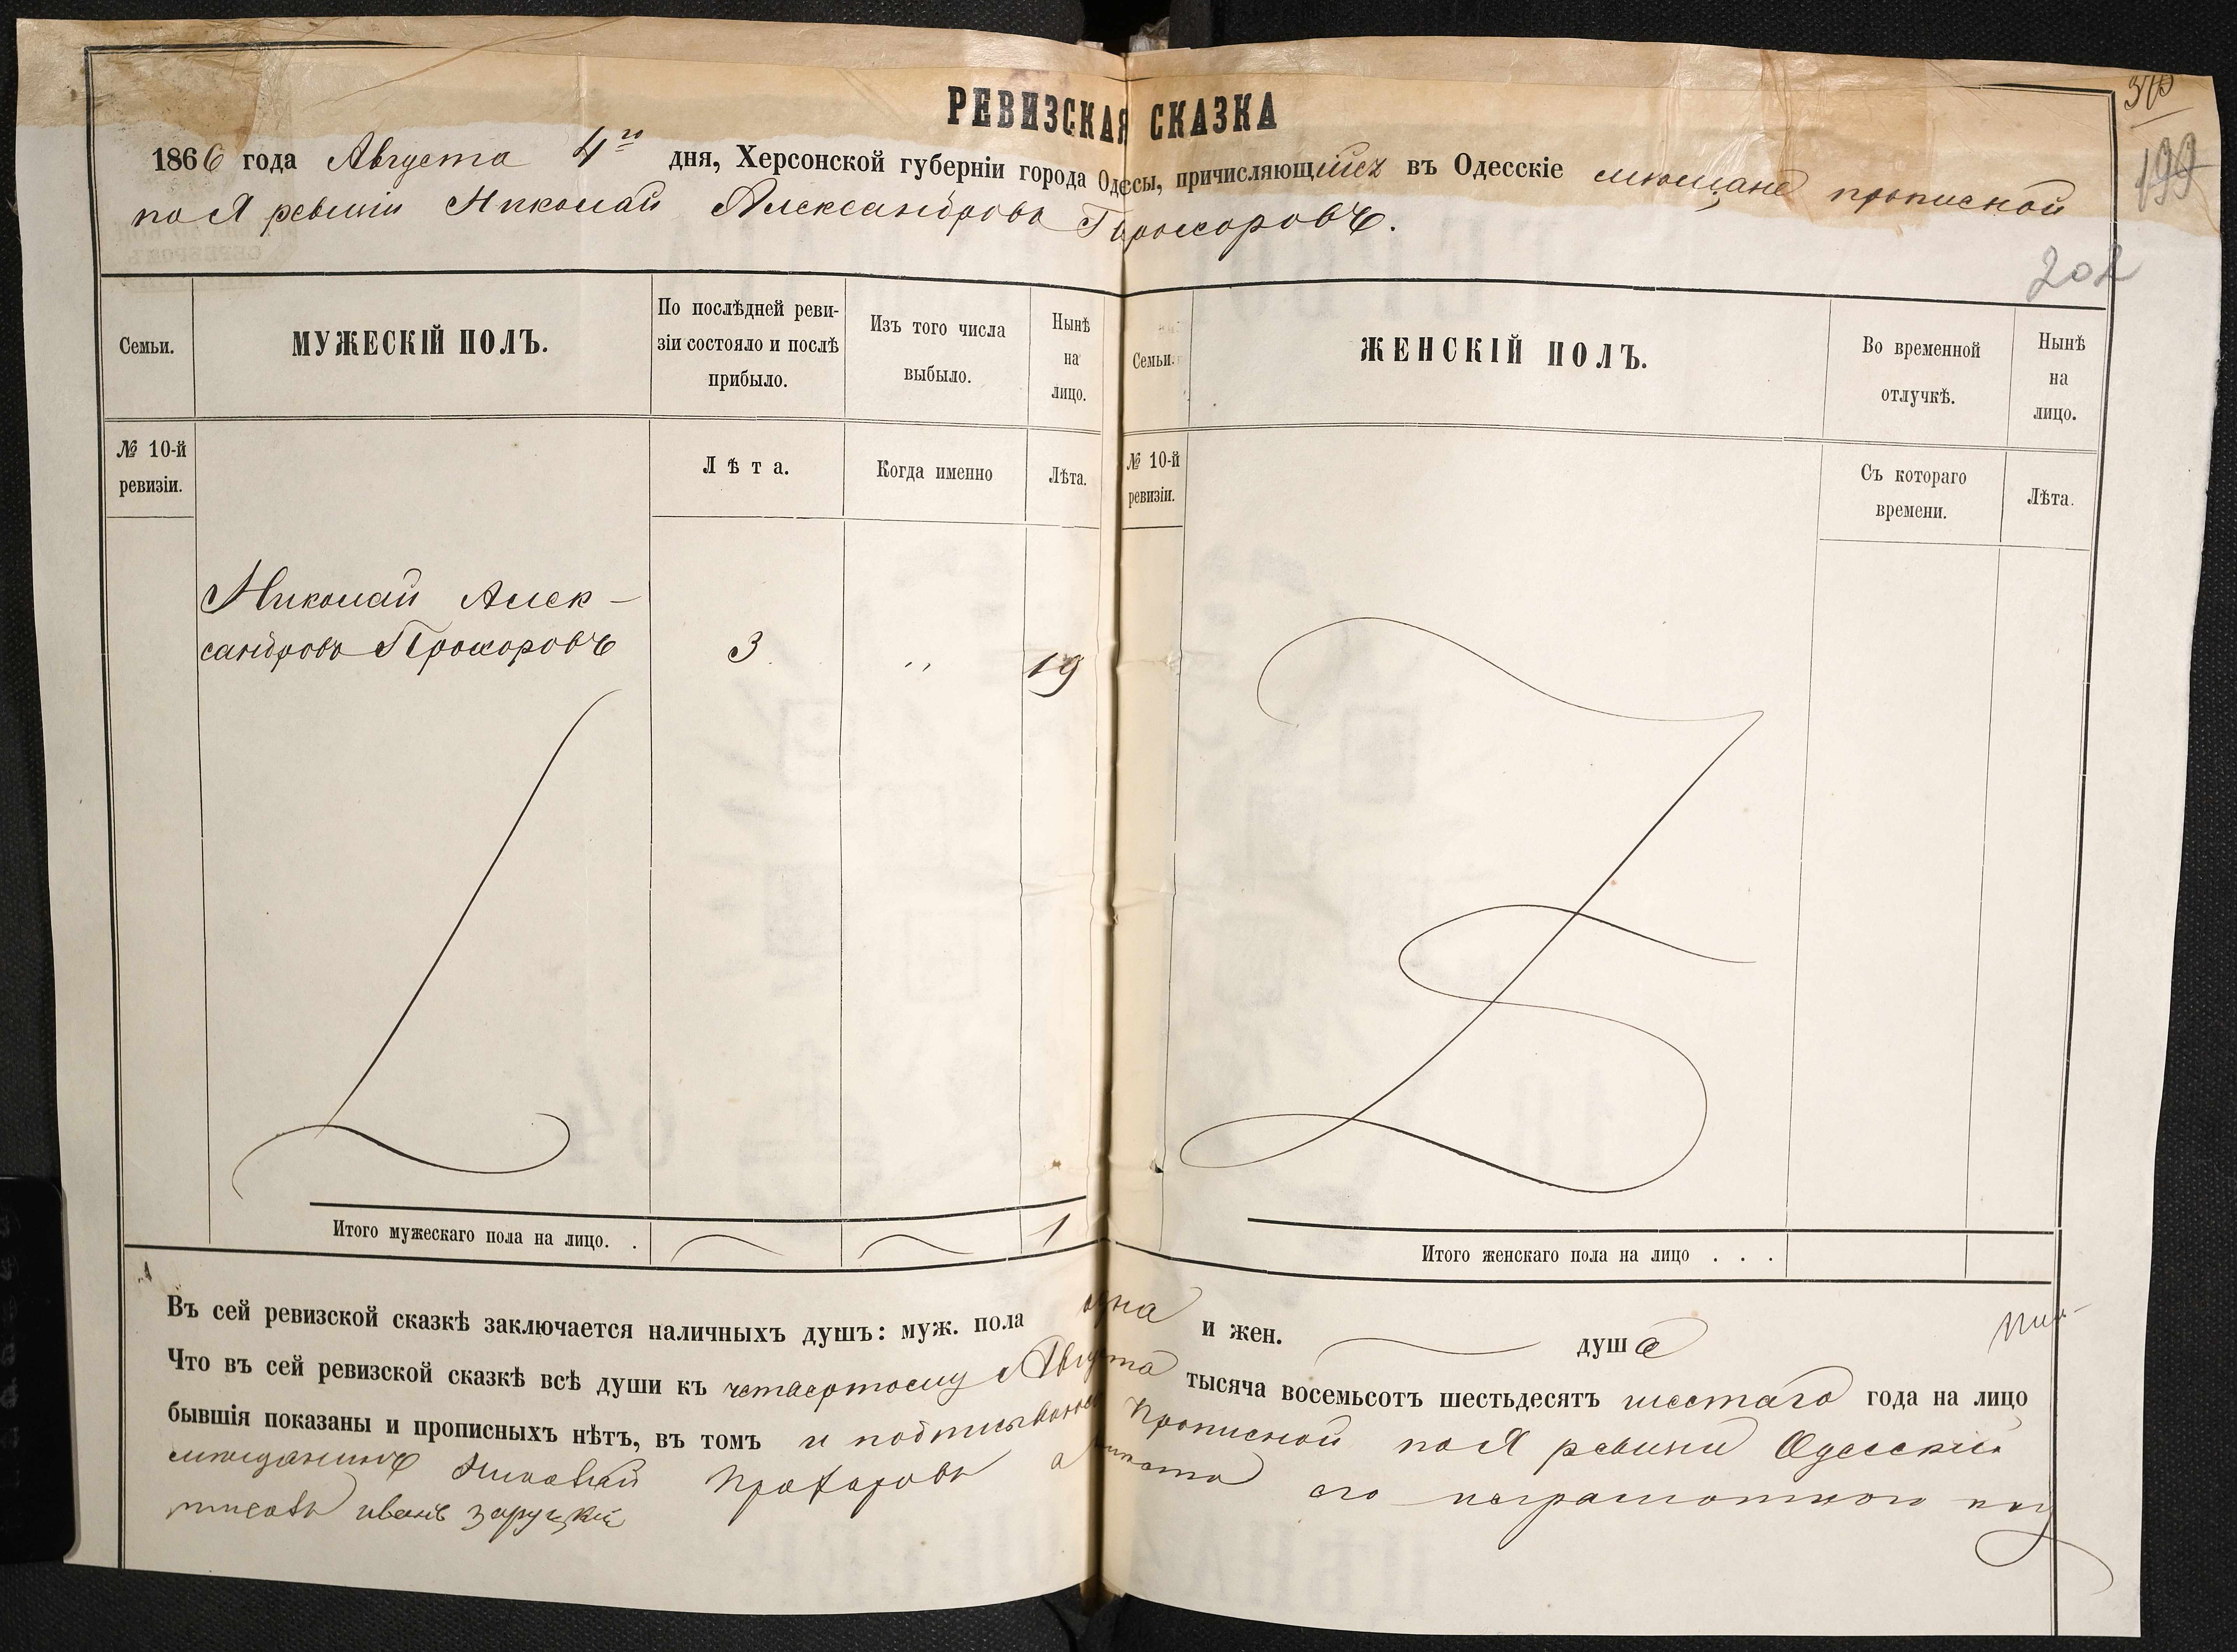 РЕВИЗСКАЯ СКАЗКА
1866 года Августа 4го дня, Херсонской губерніи города Одессы, причисляющійся въ Одесскіе мѣщане прописной
по X ревизіи Николай Александровъ Прохоровъ.
199
202
Семьи.
МУЖЕСКІЙ ПОЛЪ.
По послѣдней реви-
зіи состояло и послѣ
прибыло.
Изъ того числа
выбыло.
Нынѣ
на
лицо.
Семьи.
ЖЕНСКІЙ ПОЛЪ.
Во временной
отлучкѣ.
Нынѣ
на
лицо.
№ 10-й
ревизіи.
Лѣта.
Когда именно
Лѣта.
№ 10-й
ревизіи.
Съ котораго
времени.
Лѣта.
Николай Алек-
сандровъ Прохоровъ
3
"
19
Итого мужескаго пола на лицо. .
1
Итого женскаго пола на лицо . . .
Въ сей ревизской сказкѣ заключается наличныхъ душъ: муж. пола одна и жен. душа
Что въ сей ревизской сказкѣ всѣ души къ четвертому Августа тысяча восемьсотъ шестьдесятъ шестаго года на лицо
бывшія показаны и прописныхъ нѣтъ, въ томъ и подписываюсь Прописной по X ревизіи Одесскій
мѣщанинъ Николай Прохаровъ а его неграмотного
иванъ заруцкій